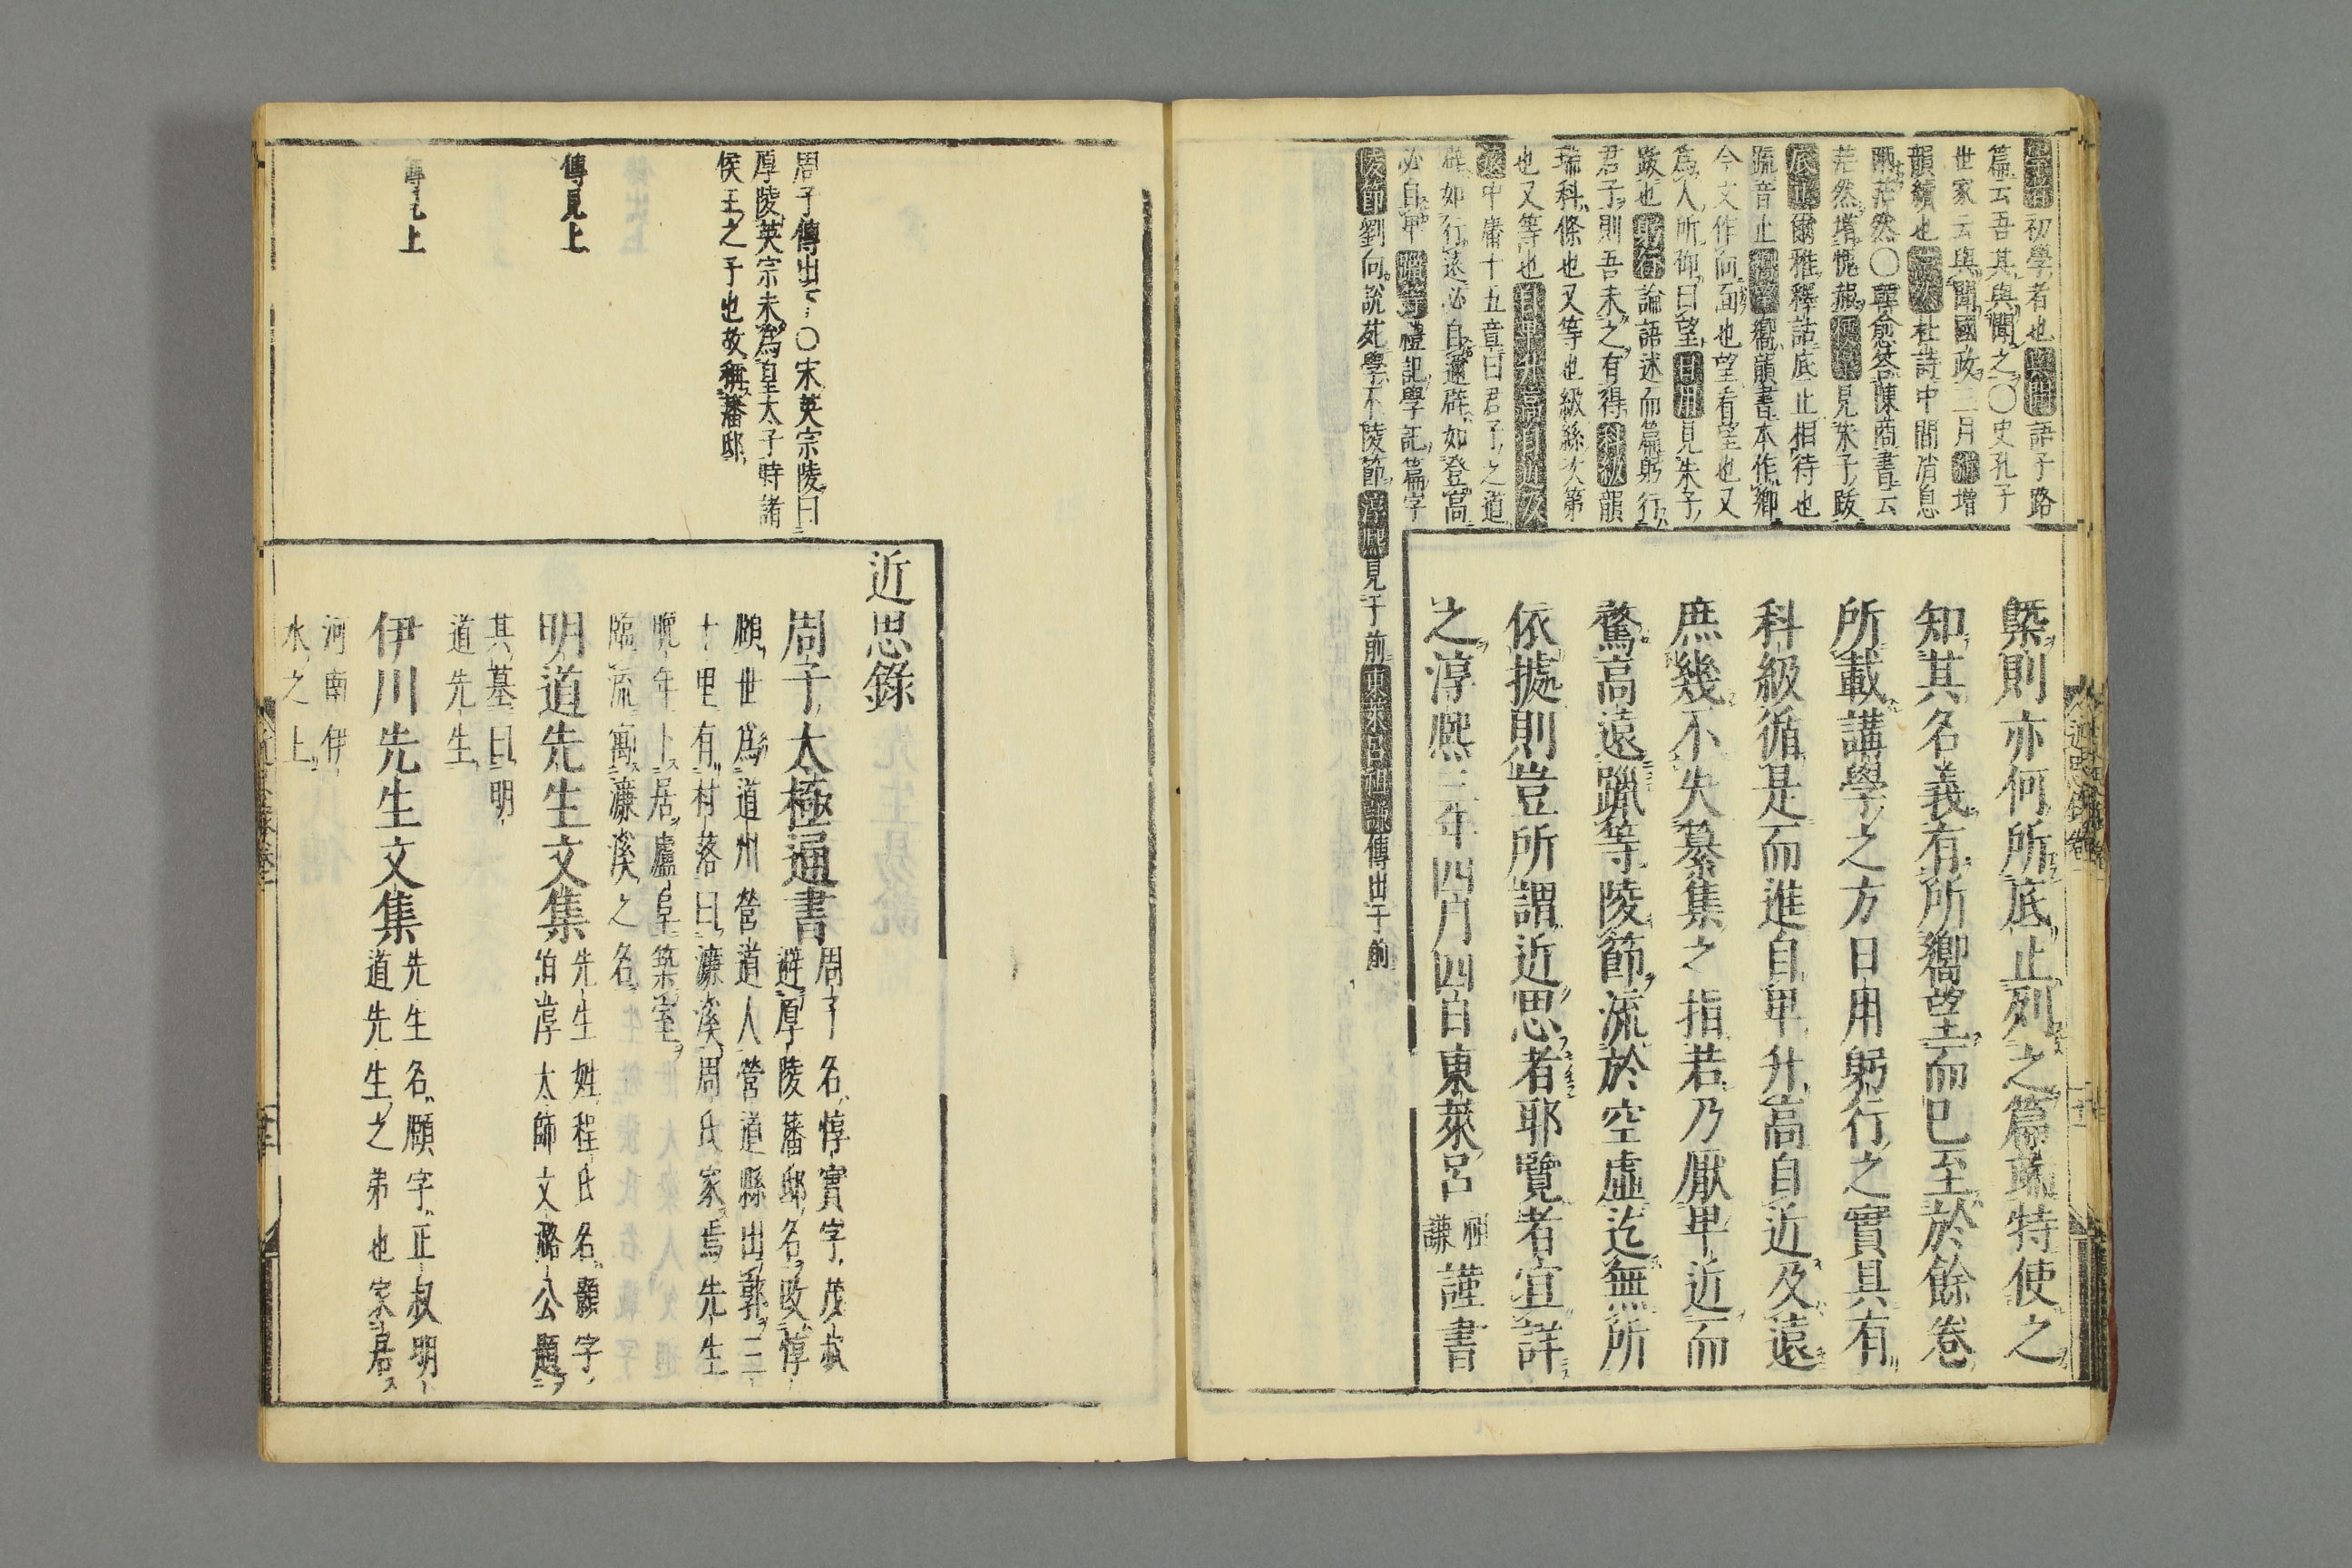 初學者也 語子路
篇云吾其與聞之○史孔子
世家云與聞國政三月 增
韻續也 杜詩中間消息
兩茫然○韓愈答陳商書云
茫然增愧赧 見朱子跋
底止 爾雅釋詁底止相待也
疏音止 嚮韻書本作鄉
今文作向面也望看望也又
為人所仰曰望 日用 見朱子
跋也 躬行 論語述而篇躬行
君子則吾未之有得 科級 韻
瑞科條也又等也級絲次第
也又等也 自卑升高自近及
遠 中庸十五章曰君子之道
辟如行遠必自邇辟如登高
必自卑 躐等 禮記學記篇字
陵節 劉向說苑學不陵節 淳熙 見于前 東萊呂祖謙 傳出于前
槩則亦何所底止列之篇端特使之
知其名義有所嚮望而已至於餘卷
所載講學之方日用躬行之實具有
科級循是而進自卑升高自近及遠
庶幾不失纂集之指若乃厭卑近而
騖高遠躐等陵節流於空虛迄無所
依據則豈所謂近思者耶覽者宜詳
之淳熙三年四月四日東萊呂祖謙謹書
周子傳出下○宋英宗陵曰
厚陵英宗未為皇太子時諸
侯王之子也故稱藩邸
傳見上
傳見上
近思錄
周子太極通書 周子名惇實字茂叔
避厚陵藩邸名改惇
頤世為道州營道人營道縣出郭三
十里有村落曰濂溪周氏家焉先生
晚年卜居廬阜築室
臨流寓濂溪之名
明道先生文集 先生姓程氏名顥字
伯淳太師文潞公題
其墓曰明
道先生
伊川先生文集 先生名頤字正叔明
道先生之弟也家居
河南伊
水之上